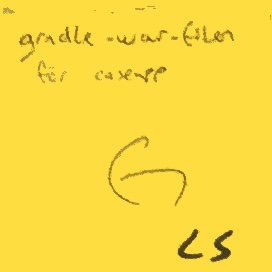 gradle-war-filen
för caseapp
G
LS